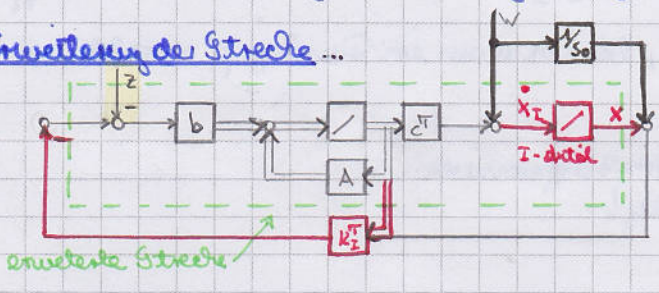 Erweiterung der Strecke ...
W
1/s₀
z
-
b
cᵀ
ẋ_I
x
I-Anteil
A
k_Iᵀ
erweiterte Strecke